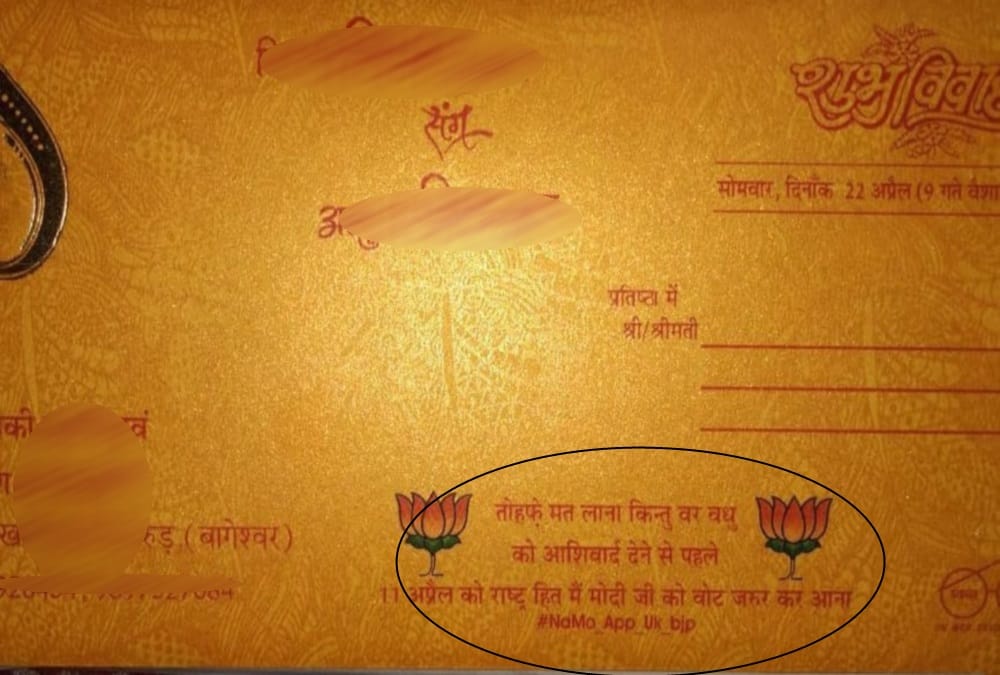 संग
शुभ विवाह
सोमवार, दिनाँक 22 अप्रैल (9 गते
प्रतिष्ठा में
श्री/श्रीमती
रुड़ (बागेश्वर)
तोहफ़े मत लाना किन्तु वर वधु
को आशिवार्द देने से पहले
11 अप्रैल को राष्ट्र हित मैं मोदी जी को वोट जरुर कर आना
#NaMo_App_Uk_bjp